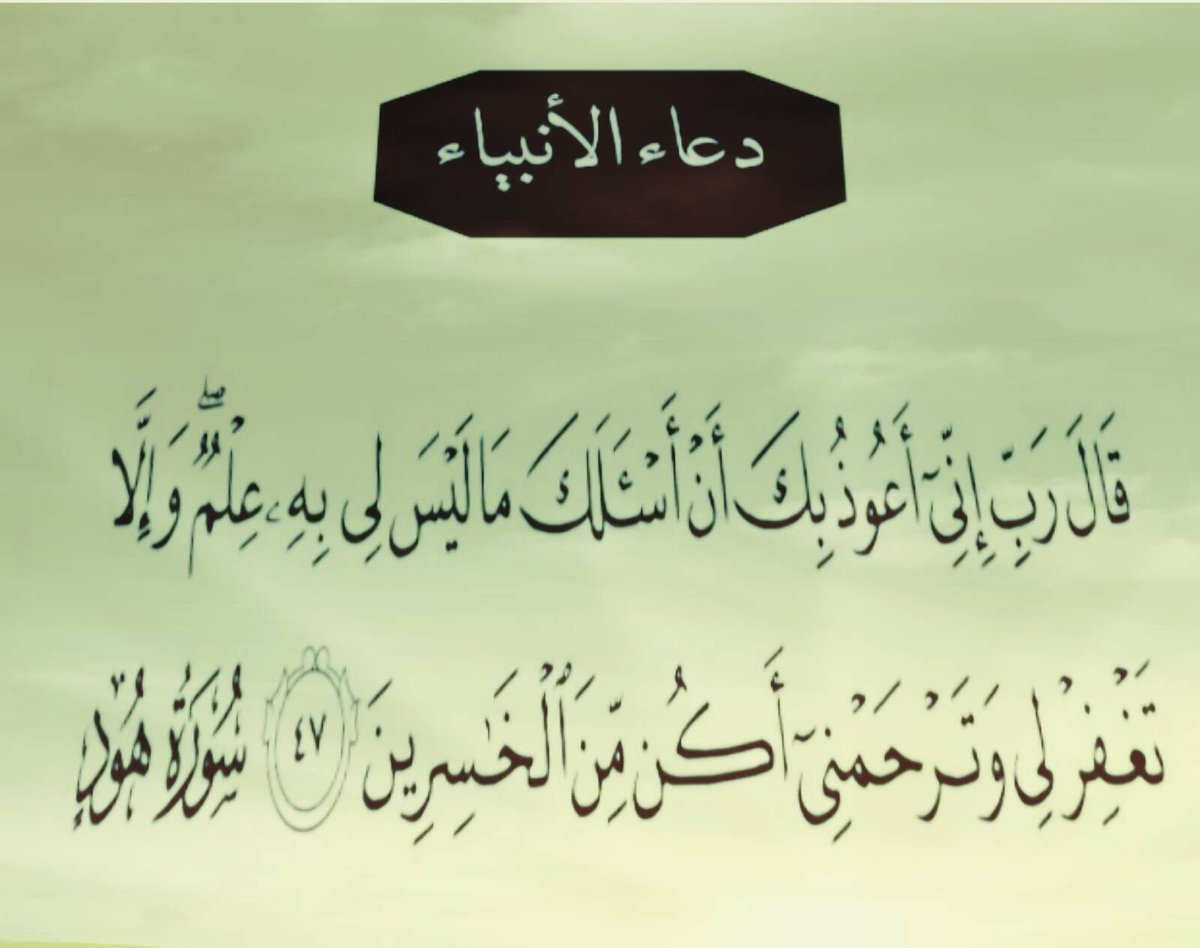 دعاء الأنبياء
قَالَ رَبِّ إِنِّىٓ أَعُوذُ بِكَ أَنْ أَسْـَٔلَكَ مَا لَيْسَ لِى بِهِۦ عِلْمٌۖ وَإِلَّا
تَغْفِرْ لِى وَتَرْحَمْنِىٓ أَكُن مِّنَ ٱلْخَٰسِرِينَ ٤٧ سُورَةُ هُودٍ